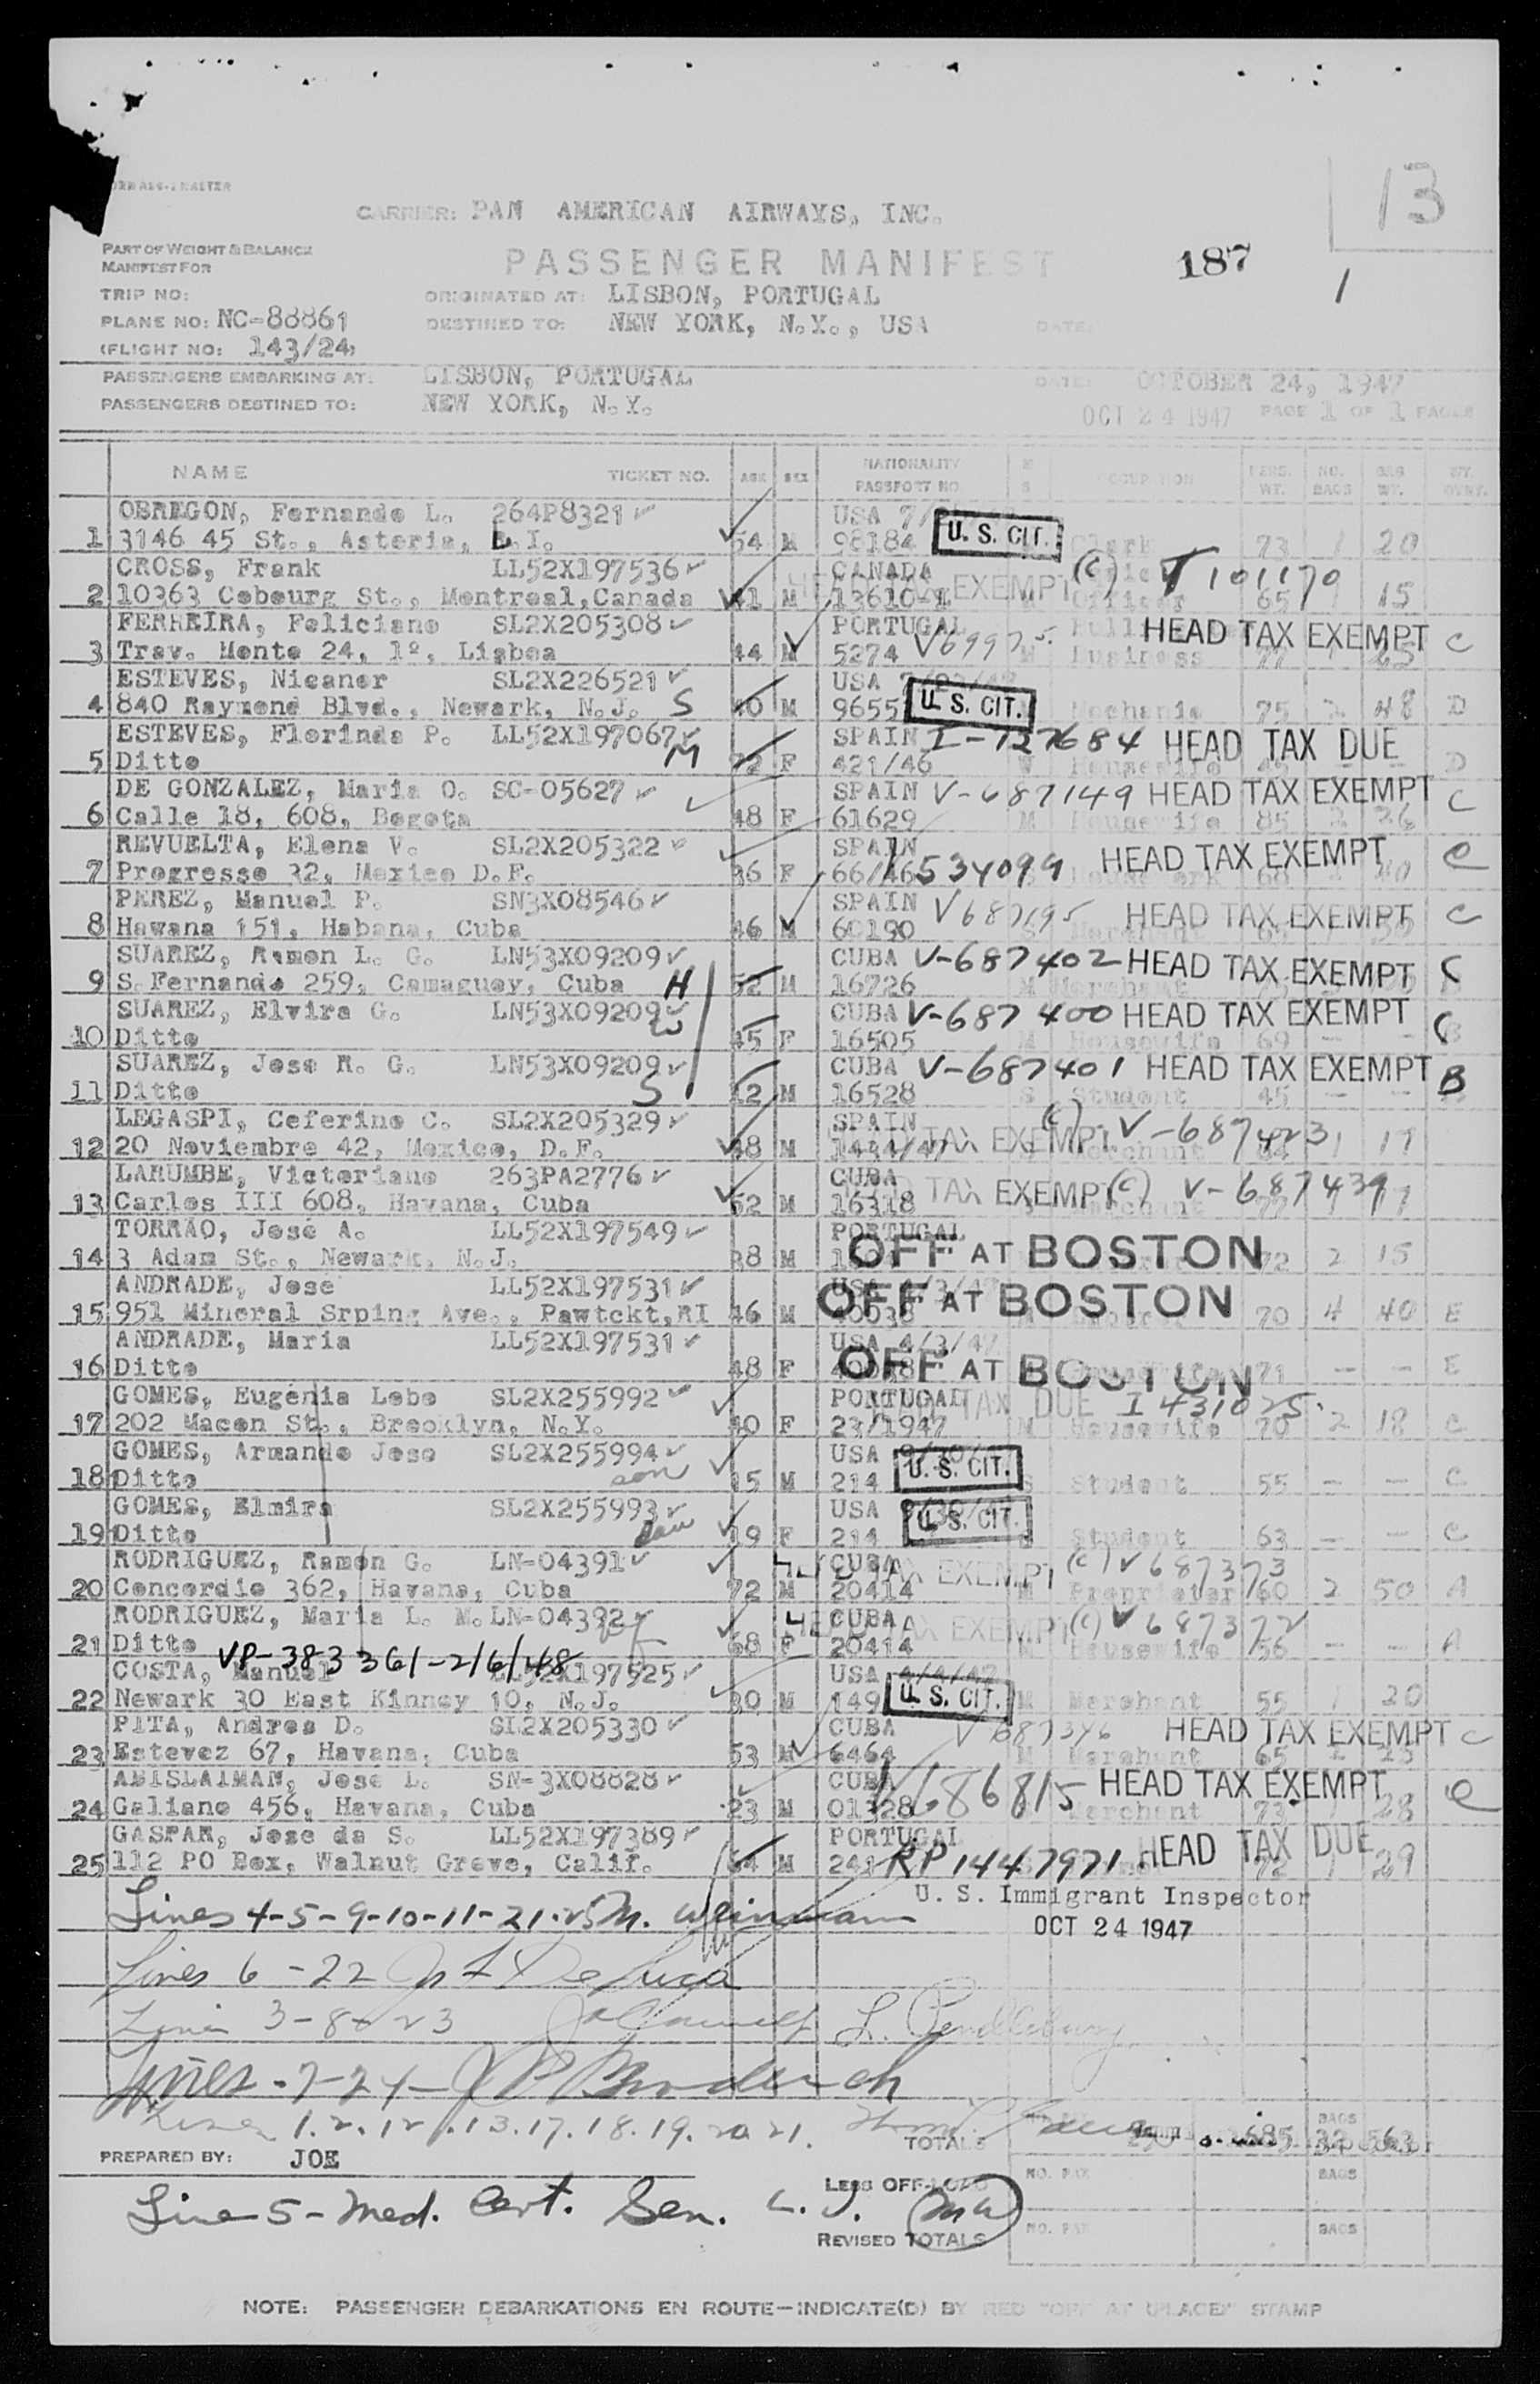 13
CARRIER: PAN AMERICAN AIRWAYS, INC.
PART OF WEIGHT & BALANCE
MANIFEST FOR
PASSENGER MANIFEST
187
1
TRIP NO:
ORIGINATED AT: LISBON, PORTUGAL
PLANE NO: NC-88861
DESTINED TO: NEW YORK, N.Y., USA
DATE:
(FLIGHT NO: 143/24)
PASSENGERS EMBARKING AT: LISBON, PORTUGAL
DATE: OCTOBER 24, 1947
PASSENGERS DESTINED TO: NEW YORK, N.Y.
OCT 24 1947 PAGE 1 OF 1 PAGES
NAME TICKET NO. AGE SEX NATIONALITY PASSPORT NO. M S OCCUPATION PERS. WT. NO. BAGS BAG WT.
OBREGON, Fernando L. 264P8321 USA
1 3146 45 St., Asteria, L.I. 54 M 98184 U. S. CIT. Clerk 73 1 20
CROSS, Frank LL52X197536 CANADA EXEMPT (C) T 101170
2 10363 Cobourg St., Montreal, Canada 41 M 13610-1 Officer 65 15
FERREIRA, Feliciano SL2X205308 PORTUGAL HEAD TAX EXEMPT C
3 Trav. Monte 24, 1º, Lisboa 44 M 5274 Business
ESTEVES, Nicanor SL2X226521 USA
4 840 Raymond Blvd., Newark, N.J. S 40 M 9655 U. S. CIT. Mechanic 75 2 48 D
ESTEVES, Florinda P. LL52X197067 SPAIN I-727684 HEAD TAX DUE
5 Ditto M F 421/46 Housewife D
DE GONZALEZ, Maria O. SC-05627 SPAIN V-687149 HEAD TAX EXEMPT C
6 Calle 18, 608, Bogota 48 F 61629 M Housewife 85 2 26
REVUELTA, Elena V. SL2X205322 SPAIN 534099 HEAD TAX EXEMPT C
7 Progresso 32, Mexico D.F. 36 F 66/46
PEREZ, Manuel P. SN3X08546 SPAIN V687195 HEAD TAX EXEMPT C
8 Hawana 151, Habana, Cuba 46 M 60190 Merchant
SUAREZ, Ramon L. G. LN53X09209 CUBA V-687402 HEAD TAX EXEMPT C
9 S. Fernando 259, Camaguey, Cuba H 52 M 16726 M Merchant
SUAREZ, Elvira G. LN53X09209 CUBA V-687400 HEAD TAX EXEMPT C
10 Ditto W 45 F 16505 M Housewife 69 - - B
SUAREZ, Jose R. G. LN53X09209 CUBA V-687401 HEAD TAX EXEMPT B
11 Ditto S 12 M 16528 S Student 45 - -
LEGASPI, Ceferino C. SL2X205329 SPAIN TAX EXEMPT (C) V-687423
12 20 Noviembre 42, Mexico, D.F. 48 M 1444/47 Merchant 1 17
LARUMBE, Victoriano 263PA2776 CUBA TAX EXEMPT (C) V-687439
13 Carlos III 608, Havana, Cuba 52 M 16318 Merchant
TORRÃO, José A. LL52X197549 PORTUGAL
14 3 Adam St., Newark, N.J. 38 M OFF AT BOSTON 72 2 15
ANDRADE, Jose LL52X197531 USA
15 951 Mineral Srping Ave., Pawtckt, RI 46 M OFF AT BOSTON 70 4 40 E
ANDRADE, Maria LL52X197531 USA 4/3/47
16 Ditto 48 F OFF AT BOSTON 71 - - E
GOMES, Eugénia Lobo SL2X255992 PORTUGAL TAX DUE I 431025
17 202 Macon St., Brooklyn, N.Y. 40 F 23/1947 M Housewife 70 2 18 C
GOMES, Armando Jose SL2X255994 USA
18 Ditto son 15 M 214 U. S. CIT. S Student 55 - - C
GOMES, Elmira SL2X255993 USA 9/30/47
19 Ditto dau 19 F 214 U. S. CIT. Student 63 - - C
RODRIGUEZ, Ramón G. LN-04391 CUBA HEAD TAX EXEMPT (C) V687373
20 Concordia 362, Havana, Cuba 72 M 20414 M Proprietor 60 2 50 A
RODRIGUEZ, Maria L. M. LN-04392 CUBA HEAD TAX EXEMPT (C) V687372
21 Ditto 68 F 20414 Housewife 56 - - A
VP-383361-2/6/48
COSTA, Manuel LL52X197525 USA 4/4/47
22 Newark 30 East Kinney 10, N.J. 30 M 149 U. S. CIT. M Merchant 55 1 20
PITA, Andres D. SL2X205330 CUBA V687346 HEAD TAX EXEMPT C
23 Estevez 67, Havana, Cuba 53 M 6464 M Merchant 65
ABISLAIMAN, José L. SN-3X08828 CUBA V686815 HEAD TAX EXEMPT C
24 Galiano 456, Havana, Cuba 23 M 01328 Merchant 73 28
GASPAR, Jose da S. LL52X197389 PORTUGAL HEAD TAX DUE
25 112 PO Box, Walnut Grove, Calif. 54 M 241 RP 1447971 72 1 29
U. S. Immigrant Inspector
Lines 4-5-9-10-11-21-25 M. Weinmann
OCT 24 1947
Lines 6-22
Line 3-8-23 L. Pendlebury
Lines -7-24-
Lines 1.2.12.13.17.18.19.20 21.
TOTALS 32 563
BAGS
PREPARED BY: JOE
LESS OFF-LOAD NO. PAX BAGS
Line 5 - Med. Cert. Sen.
REVISED TOTALS NO. PAX BAGS
NOTE: PASSENGER DEBARKATIONS EN ROUTE—INDICATE(D) BY RED "OFF AT (PLACE)" STAMP